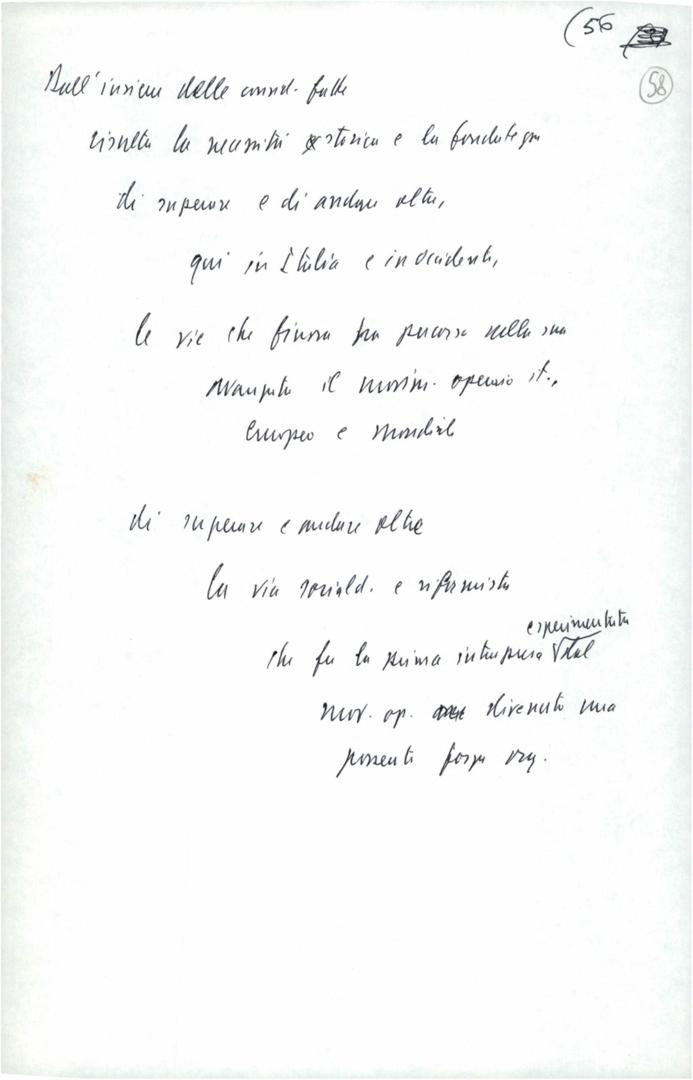 (56
58
Dall'insieme delle consid. fatte
risulta la necessità storica e la fondatezza
di superare e di andare oltre,
qui in Italia e in occidente,
le vie che finora ha percorso nella sua
avanzata il movim. operaio it.,
europeo e mondiale
di superare e andare oltre
la via sociald. e riformista
esperimentata
che fu la prima intrapresa dal
mov. op. divenuto una
possente forza org.